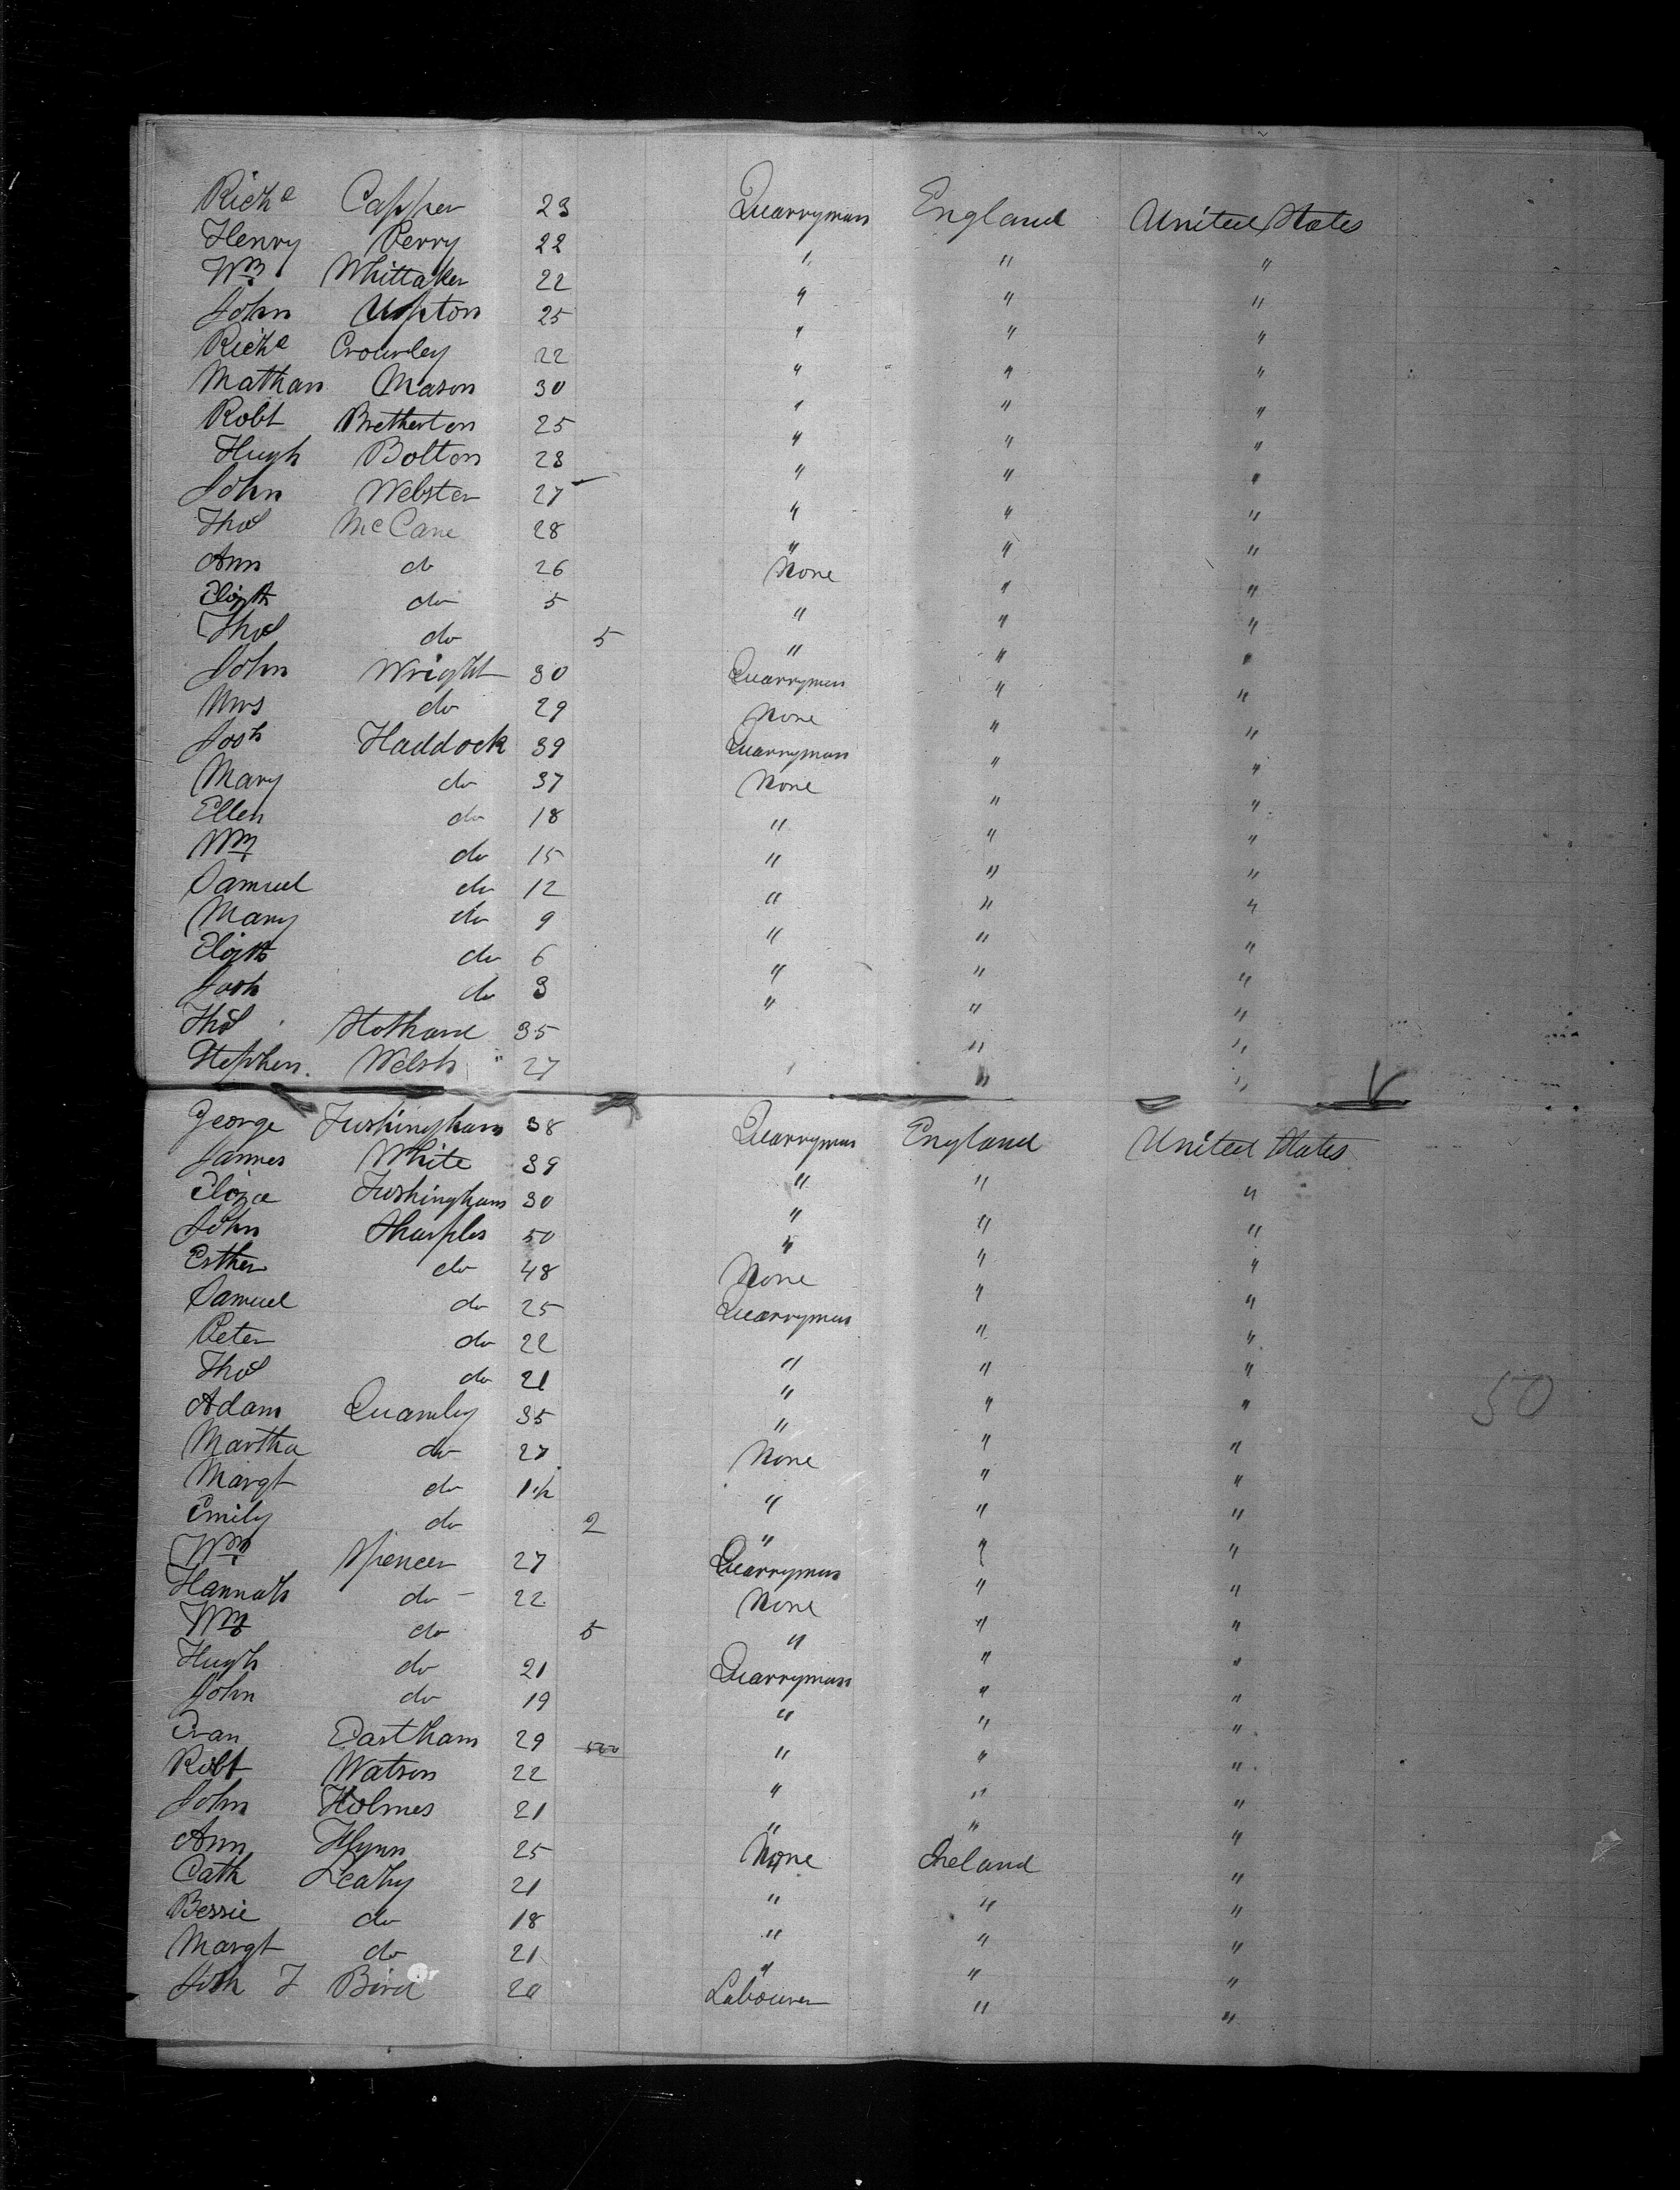 Richd Capper 23 Quarryman England United States
Henry Perry 22 " " "
Wm Whittaker 22 " " "
John Upton 25 " " "
Richd Crowley 22 " " "
Mathan Mason 30 " " "
Robt Bretherton 25 " " "
Hugh Bolton 23 " " "
John Webster 27 " " "
Thos McCane 28 " " "
Ann do 26 None " "
Elizth do 5 " " "
Thos do 5 " " "
John Wright 30 Quarryman " "
Mrs do 29 None " "
Josh Haddock 39 Quarryman " "
Mary do 37 None " "
Ellen do 18 " " "
Wm do 15 " " "
Samuel do 12 " " "
Mary do 9 " " "
Elizth do 6 " " "
Josh do 3 " " "
Thos 35 " "
Stephen Welsh 27 " "
George Fushingham 38 Quarryman England United States
James White 39 " " "
Eliza Fushingham 30 " " "
John Sharples 50 " " "
Esther do 48 None " "
Samuel do 25 Quarryman " "
Peter do 22 " " "
Thos do 21 " " "
Adam Quamby 35 " " "
Martha do 27 None " "
Margt do " " "
Emily do 2 " " "
Wm Spencer 27 Quarryman " "
Hannah do 22 None " "
Wm do 5 " " "
Hugh do 21 Quarryman " "
John do 19 " " "
Evan Eastham 29 " " "
Robt Watson 22 " " "
John Holmes 21 " " "
Ann Flynn 25 None Ireland "
Cath Leahy 21 " " "
Bessie do 18 " " "
Margt do 21 " " "
Bird 20 Labourer " "
50